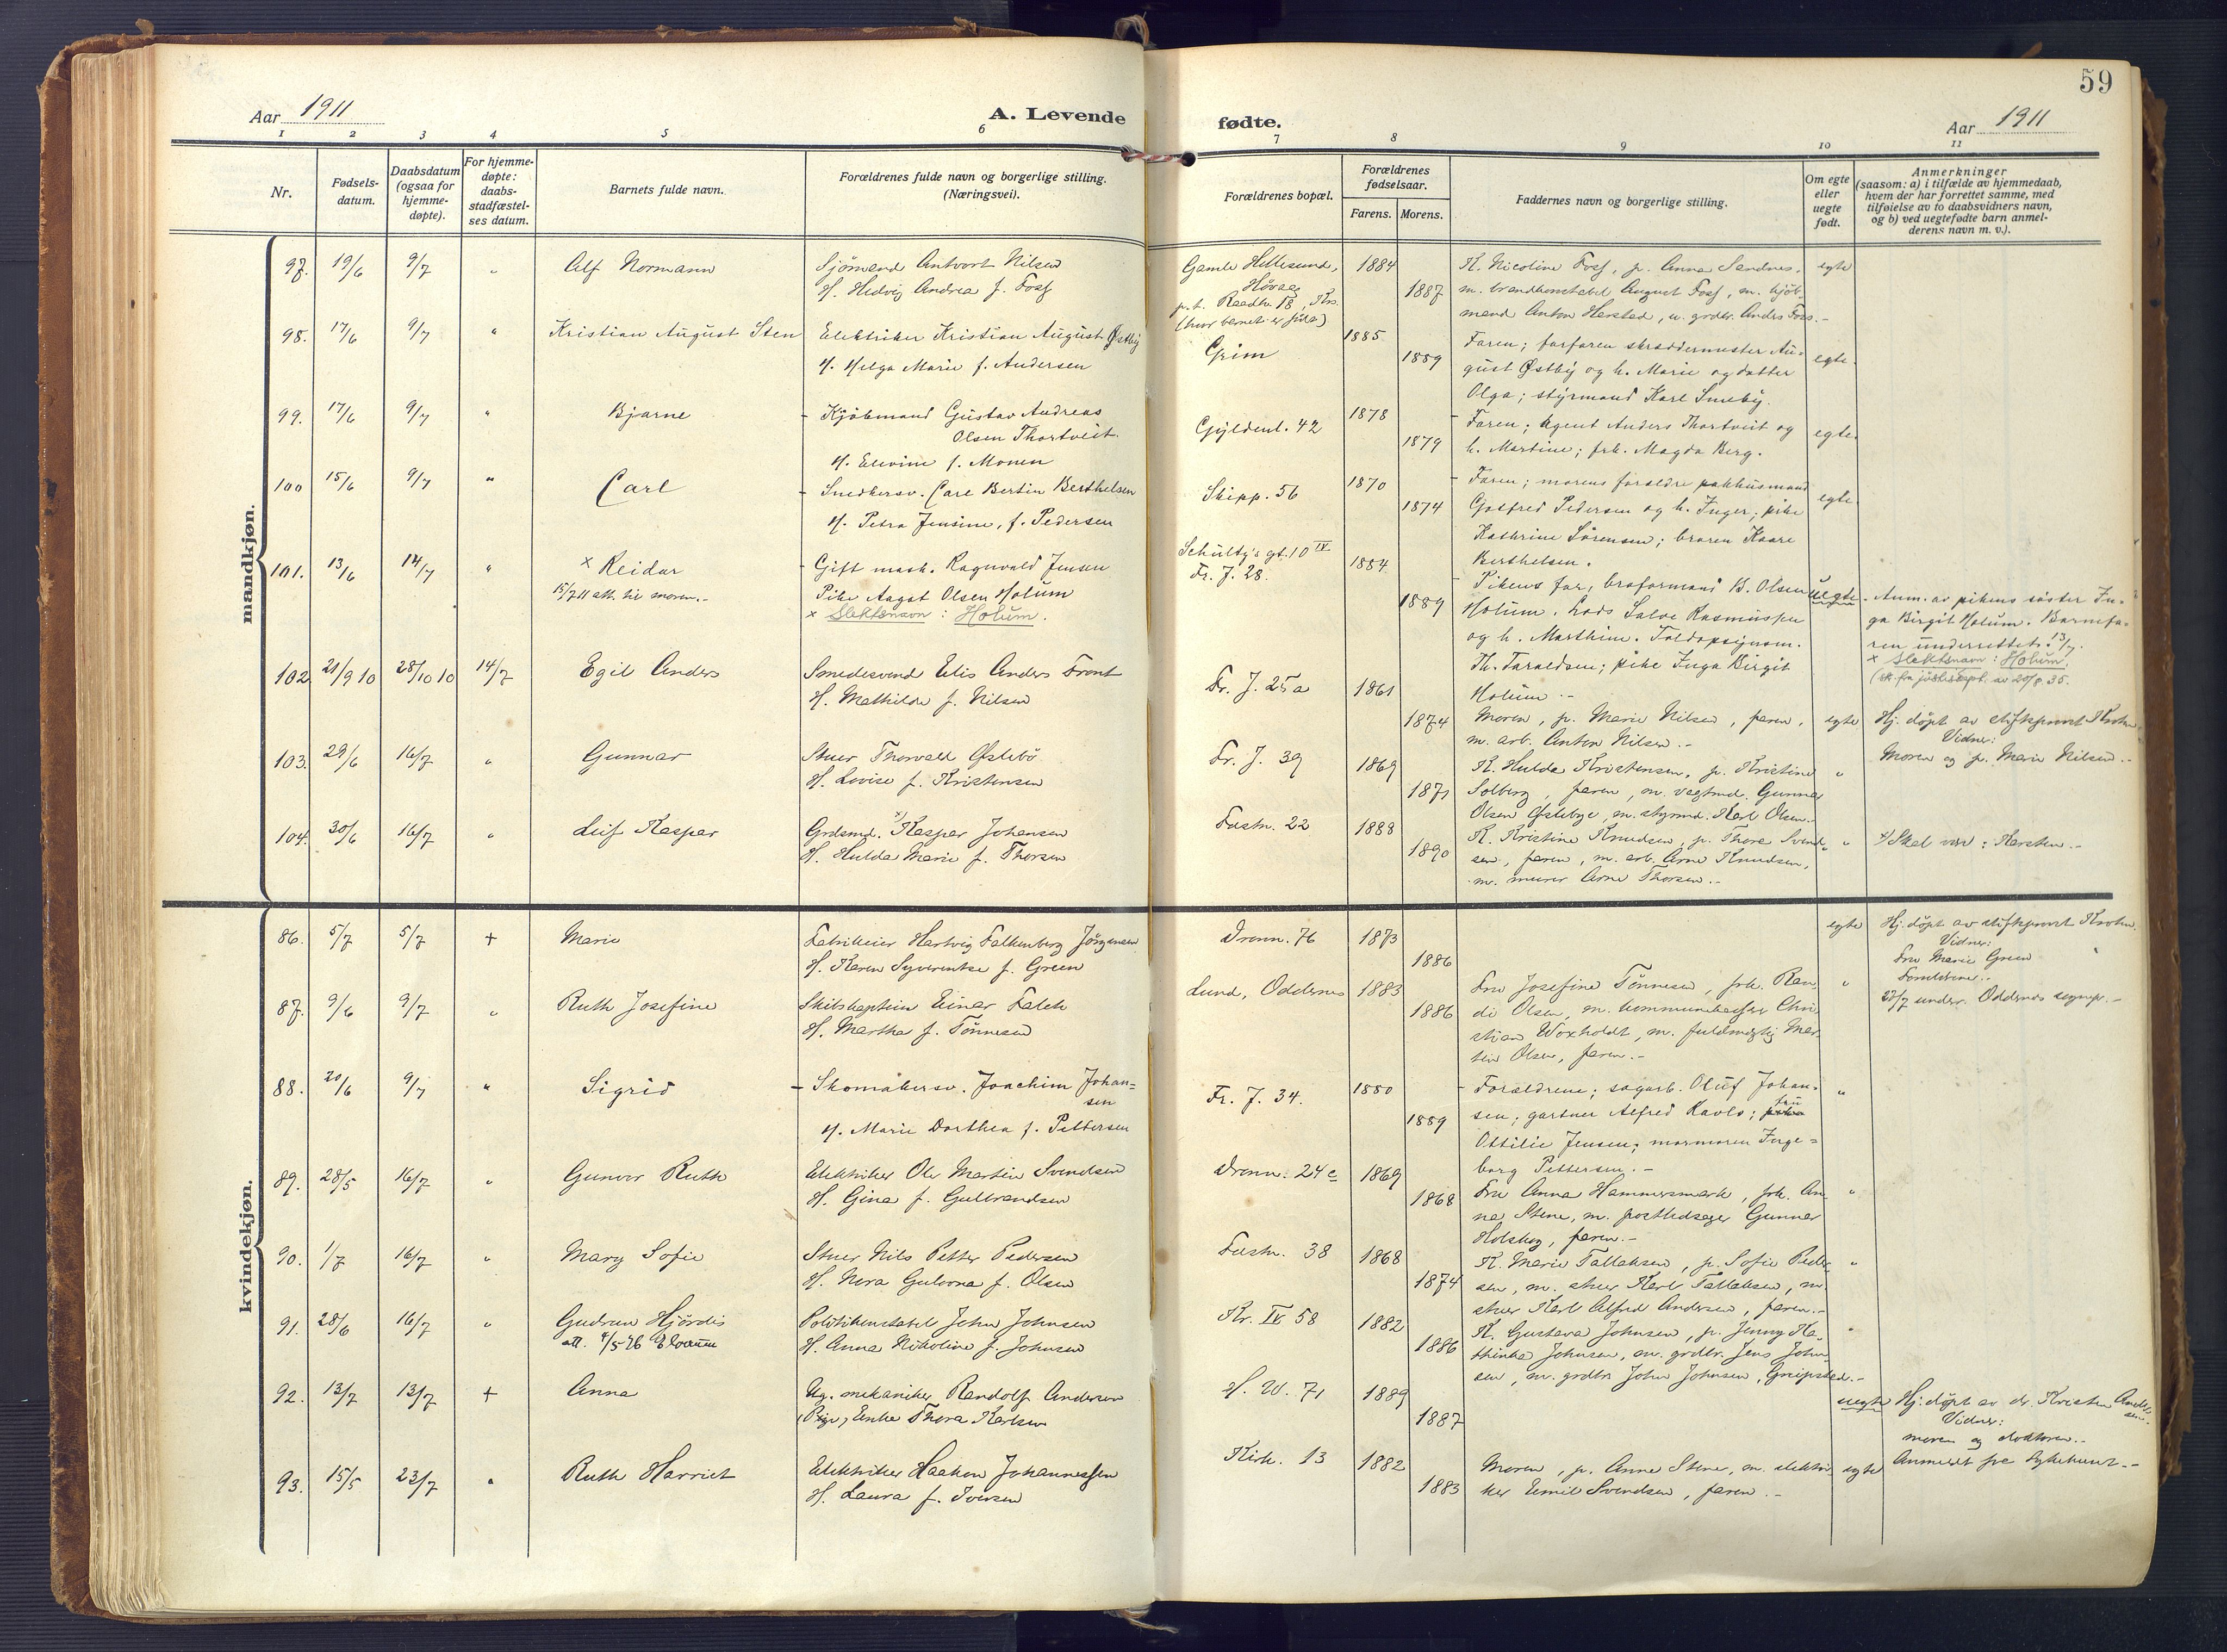 59
Aar 1911
A. Levende
fødte.
Aar 1911
1 2 3 4 5 6 7 8 9 10 11
Nr.
Fødsels-
datum.
Daabsdatum
(ogsaa for
hjemme-
døpte).
For hjemme-
døpte:
daabs-
stadfæstel-
ses datum.
Barnets fulde navn.
Forældrenes fulde navn og borgerlige stilling.
(Næringsvei).
Forældrenes bopæl.
Forældrenes
fødselsaar.
Farens. Morens.
Faddernes navn og borgerlige stilling.
Om egte
eller
uegte
født.
Anmerkninger
(saasom: a) i tilfælde av hjemmedaab,
hvem der har forrettet samme, med
tilføielse av to daabsvidners navn,
og b) ved uegtefødte barn anmel-
derens navn m. v.).
mandkjøn.
97. 19/6 9/7 " Alf Normann
Sjömand Antvort Nilsen
H. Hedvig Andrea f. Foss
Gamle Hellesund,
Høvaag
p.t. Raadh. 18, Krs.
(hvor barnet er född)
1884
1887
K. Nicoline Foss, p. Anna Sandnes,
m. brandkonstabel August Foss, m. kjöb-
mand Anton Hersted, u. grdbr. Anders Foss.-
egte
98. 17/6 9/7 " Kristian August Sten
Elektriker Kristian August Østby
H. Helga Marie f. Andersen
Grim
1885
1889
Faren; farfaren skræddermester Au-
gust Østby og h. Marie og datter
Olga; styrmand Karl Smeby.
egte.
99. 17/6 9/7 " Bjarne
- Kjöbmand Gustav Andreas
Olsen Thortveit.
H. Elevine f. Monen
Gyldenl. 42
1878
1879
- Faren; Agent Anders Thortveit og
h. Martine; frk. Magda Berg.
egte.
100 15/6 9/7 " Carl
- Snedkersv. Carl Bertin Berthelsen
H. Petra Jensine, f. Pedersen
Skipp. 56
1870
1874
- Faren; morens forældre pakhusmand
Gotfred Pedersen og h. Inger; pike
Kathrine Sörensen; broren Kaare
Berthelsen.
egte.
101. 13/6 14/7 " x Reidar
15/7 11 att. til moren.-
- Gift mask. Ragnvald Jensen
Pike Aagot Olsen Holum
x Slektsnavn: Holum.
Schultz's gt. 10 IV
Fr. J. 28.
1884
1889
- Pikens far, broformand B. Olsen
Holum. Lods Salve Rasmussen
og h. Marthine. Toldopsynsm.
Th. Taraldsen; pike Inga Birgit
Holum.-
uegte.
Anm. av pikens søster In-
ga Birgit Holum. Barnefa-
ren underrettet. 13/7.
x Slektsnavn: Holum.
(sk. fra justisdept. av 20/8 35.
102 21/9 10 28/10 10 14/7 Egil Anders
Smedesvend Elis Anders Front
H. Mathilde f. Nilsen
Fr. J. 25a
1861
1874
Moren, p. Marie Nilsen, faren,
m. arb. Anton Nilsen.-
egte
Hj. døpt av stiftsprovst Krohn.
Vidner:
Moren og p. Marie Nilsen.-
103. 29/6 16/7 " Gunnar
Stuer Thorvald Øslebö
H. Lovise f. Kristensen
Fr. J. 39
1869
1871
K. Hulda Kristensen, p. Kristine
Solberg, faren, m. vegtmd. Gunnar
Olsen Øslebye, m. styrmd. Karl Olsen.
"
104. 30/6 16/7 " Leif Kasper
Grdsmd. x) Kasper Johansen
H. Hulda Marie f. Thorsen
Fæstn. 22
1888
1890
K. Kristine Knudsen, p. Thora Svend-
sen, faren, m. arb. Arne Knudsen,
m. murer Arne Thorsen.-
"
x/ Skal være: Karsten.-
kvindekjøn.
86. 5/7 5/7 + Marie
Fabrikeier Hartvig Falkenberg Jörgensen
H. Karen Syverentse f. Green
Dronn. 76
1873
1886
egte
Hj. døpt av stiftsprovst Krohn.
Vidner:
Fru Marie Green
Forældrene.-
87. 9/6 9/7 " Ruth Josefine
Skibskaptein Einar Falch
H. Martha f. Tönnesen
Lund, Oddernes
1883
1886
Fru Josefine Tönnesen, frk. Ran-
di Olsen, m. kommunekasserer Chri-
stian Woxholdt, m. fuldmægtig Mar-
tin Olsen, faren.-
"
28/7 underr. Oddernes sognep.-
88. 20/6 9/7 " Sigrid
- Skomakersv. Joachim Johan=
sen
H. Marie Dorthea f. Pettersen
Fr. J. 34.
1880
1889
- Forældrene; sagarb. Oluf Johan-
sen; gartner Alfred Kavlo; fru
Ottilie Jensen; mormoren Inge=
borg Pettersen.-
"
89. 28/5 16/7 " Gunvor Ruth
Elektriker Ole Martin Svendsen
H. Gina f. Gulbrandsen
Dronn. 24c
1869
1868
Fru Anna Hammersmark, frk. An-
na Stene, m. postledsager Gunnar
Holskog, faren.-
"
90. 1/7 16/7 " Mary Sofie
Stuer Nils Petter Pedersen
H. Nora Gulovna f. Olsen
Fæstn. 38
1868
1874
K. Marie Tallaksen, p. Sofie Peder-
sen, m. stuer Karl Tallaksen, m.
stuer Karl Alfred Andersen, faren.-
"
91. 28/6 16/7 " Gudrun Hjördis
att. 4/5-26
Politikonstabel John Johnsen
H. Anna Nikoline f. Johnsen
Kr. IV 58
1882
1886
K. Gustava Johnsen, p. Jenny Ka-
thinka Johnsen, m. grdbr. Jens John-
sen, m. grdbr John Johnsen, Gripsted.-
"
92. 13/7 13/7 + Anna
Ug. mekaniker Randolf Andersen
(Pige) Enke Thora Karlsen
H. W. 71
1889
1887
uegte
Hj. døpt av dr. Kristen Ander-
sen.
Vidner:
moren og doktoren.-
93. 15/5 23/7 " Ruth Harriet
Elektriker Haakon Johannessen
H. Laura f. Iversen
Kirk. 13
1882
1883
Moren, p. Anna Stene, m. elektri-
ker Emil Svendsen, faren.-
egte
Anmeldt fra Sykehuset.-